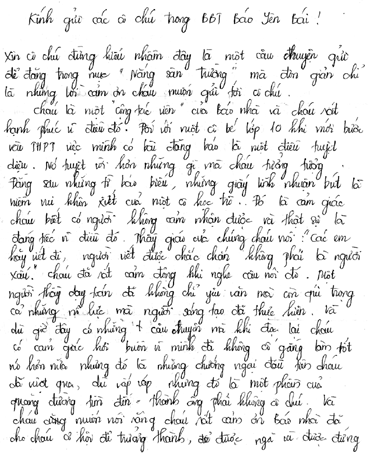 Kính gửi các cô chú trong BBT báo Yên Bái!
Xin cô chú đừng hiểu nhầm đây là một câu chuyện gửi
để đăng trong mục "Nắng sân trường" mà đơn giản chỉ
là những lời cảm ơn cháu muốn gửi tới cô chú.
Cháu là một "cộng tác viên" của báo nhà và cháu rất
hạnh phúc vì điều đó. Đối với một cô bé lớp 10 khi mới bước
vào THPT việc mình có bài đăng báo là một điều tuyệt
diệu. Nó tuyệt vời hơn những gì mà cháu tưởng tượng.
Đằng sau những tờ báo biếu, những giấy lĩnh nhuận bút là
niềm vui khôn xiết của một cô học trò. Đó là cảm giác
cháu biết có người không cảm nhận được và thật sự là
đáng tiếc vì điều đó. Thầy giáo của chúng cháu nói: "Các em
hãy viết đi, người viết được chắc chắn không phải là người
xấu." Cháu đã rất cảm động khi nghe câu nói đó. Một
người thầy dạy toán đã không chỉ yêu văn mà còn quí trọng
cả những nỗ lực mà người sáng tạo đã thực hiện. Và
dù giờ đây có những câu chuyện mà khi đọc lại cháu
có cảm giác hơi buồn vì mình đã không cố gắng làm tốt
nó hơn nữa nhưng đó là những chướng ngại đầu tiên cháu
đã vượt qua, dù vấp váp nhưng đó là một phần của
quãng đường tìm đến thành công phải không cô chú. Và
cháu cũng muốn nói rằng cháu rất cảm ơn báo nhà đã
cho cháu cơ hội để trưởng thành, để được ngã và được đứng